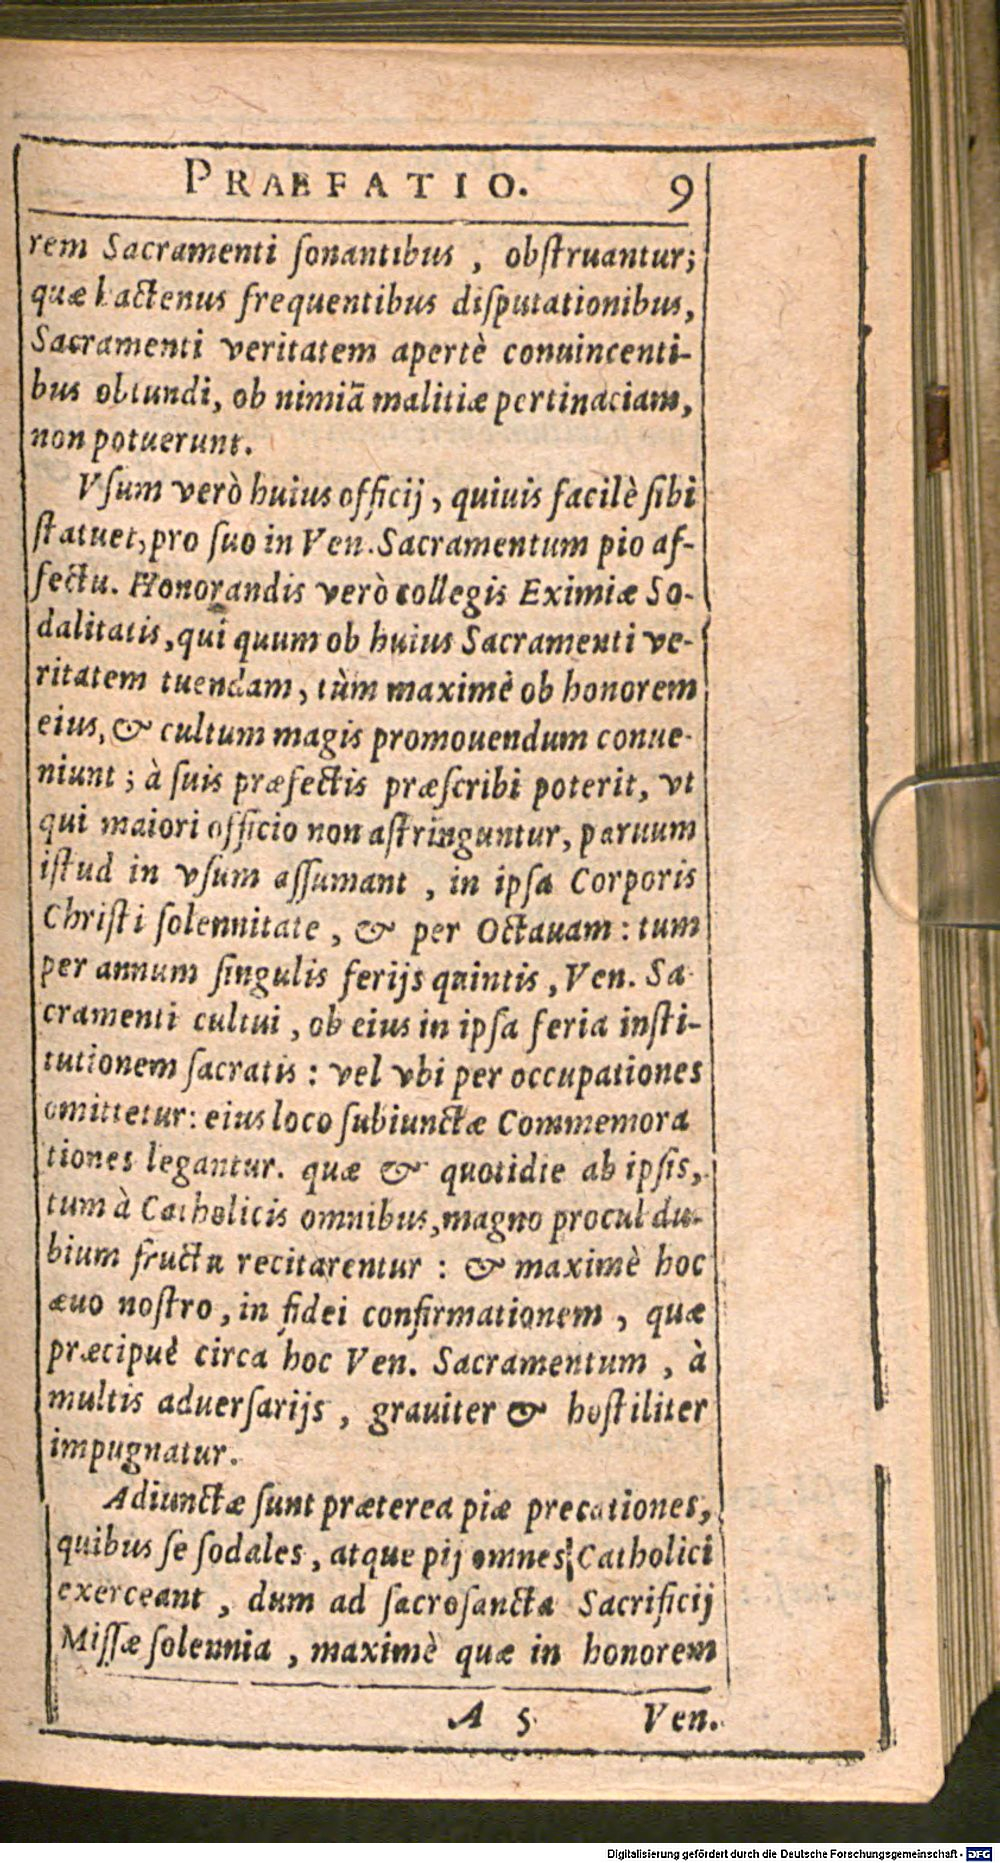 PRAEFATIO. 9
rem Sacramenti ſonantibus, obſtruantur;
quæ hactenus frequentibus diſputationibus,
Sacramenti veritatem apertè conuincenti-
bus obtundi, ob nimiã malitiæ pertinaciam,
non potuerunt.
Vſum verò huius officij, quiuis facilè ſibi
ſtatuet, pro ſuo in Ven. Sacramentum pio af-
fectu. Honorandis verò collegis Eximiæ So-
dalitatis, qui quum ob huius Sacramenti ve-
ritatem tuendam, tùm maximè ob honorem
eius, & cultum magis promouendum conue-
niunt; à ſuis præfectis præſcribi poterit, vt
qui maiori officio non aſtringuntur, paruum
iſtud in vſum aſſumant, in ipſa Corporis
Chriſti ſolennitate, & per Octauam: tum
per annum ſingulis ferijs quintis, Ven. Sa-
cramenti cultui, ob eius in ipſa feria inſti-
tutionem ſacratis: vel vbi per occupationes
omittetur: eius loco ſubiunctæ Commemora
tiones legantur. quæ & quotidie ab ipſis,
tum à Catholicis omnibus, magno procul du-
bium fructu recitarentur: & maximè hoc
æuo noſtro, in fidei confirmationem, quæ
præcipuè circa hoc Ven. Sacramentum, à
multis aduerſarijs, grauiter & hoſtiliter
impugnatur.
Adiunctæ ſunt præterea piæ precationes,
quibus ſe ſodales, atque pij omnes Catholici
exerceant, dum ad ſacroſancta Sacrificij
Miſſæ ſolennia, maximè quæ in honorem
A 5 Ven.
Digitalisierung gefördert durch die Deutsche Forschungsgemeinschaft - DFG